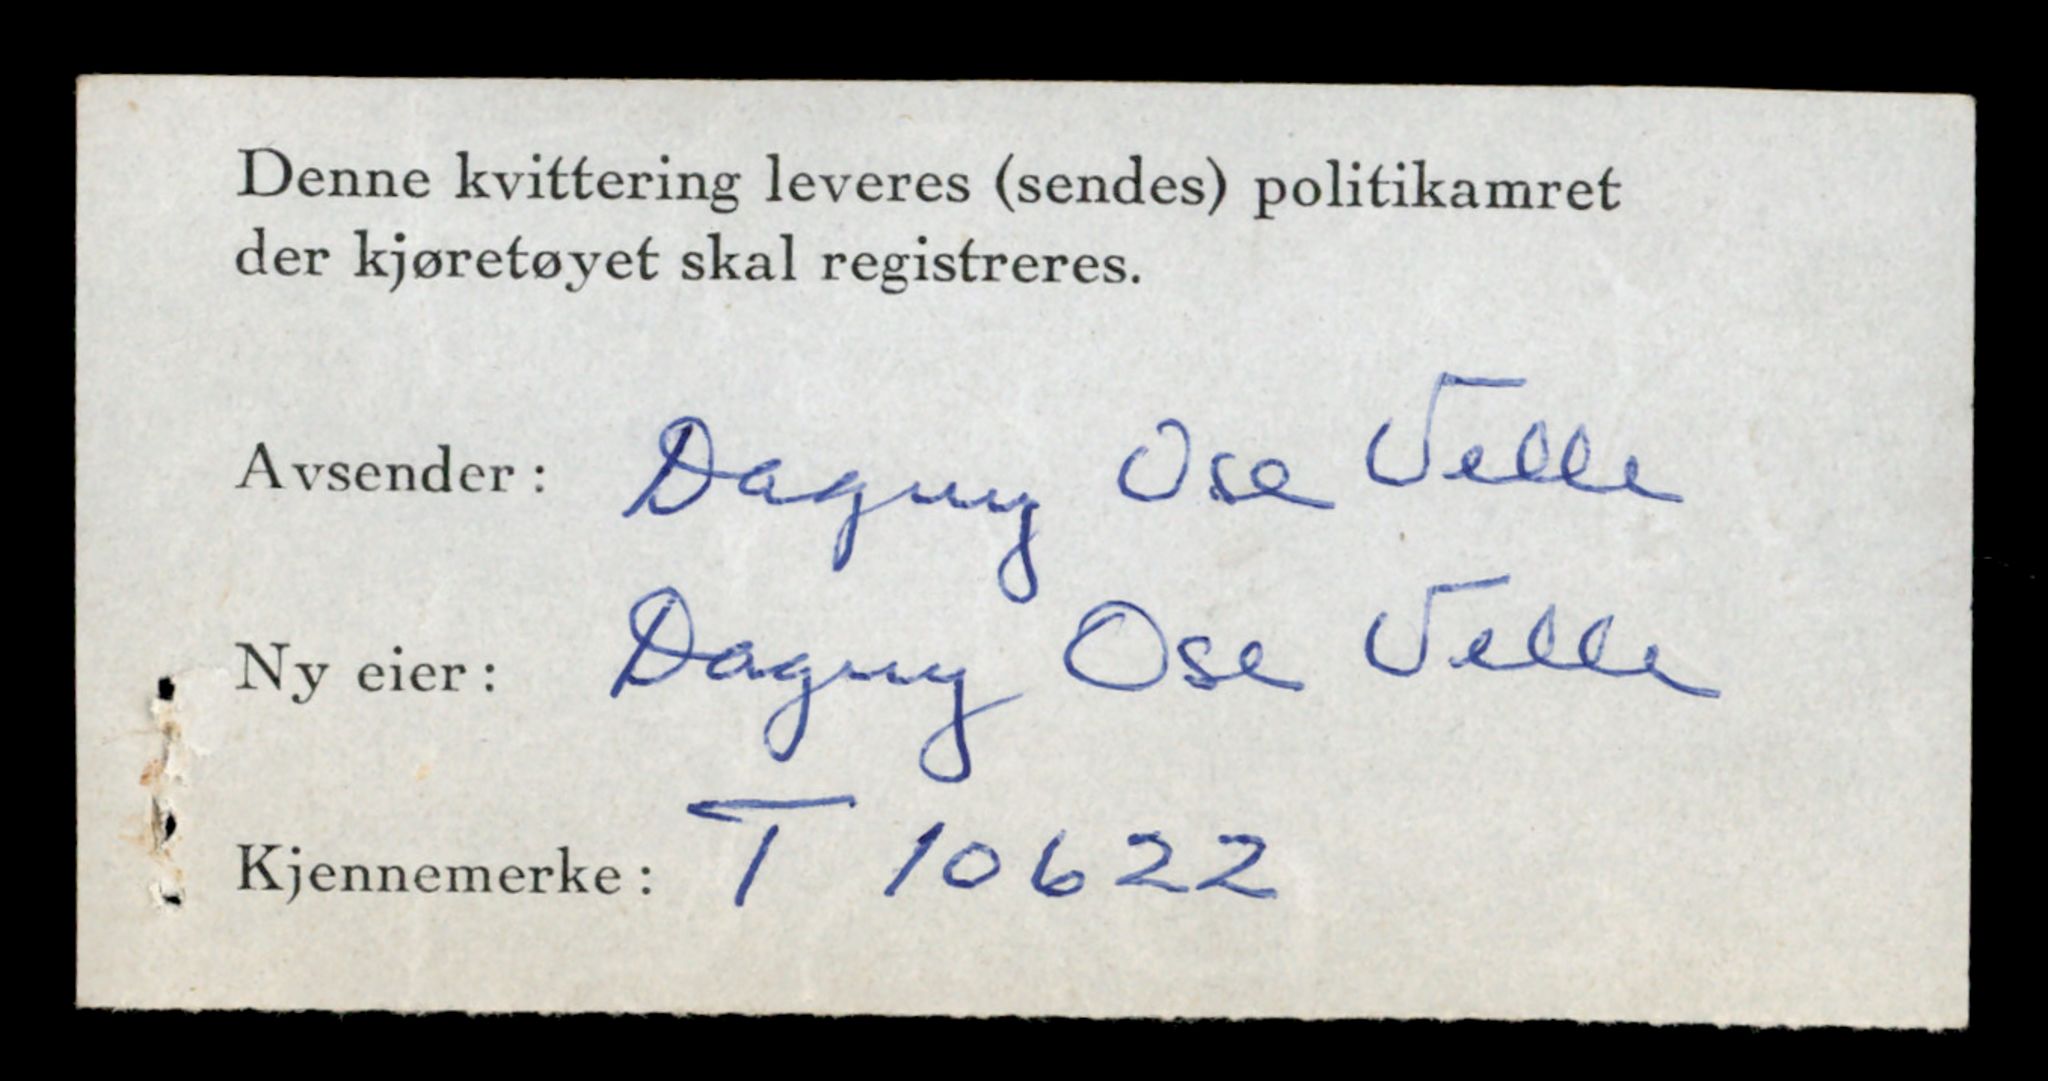 Denne kvittering leveres (sendes) politikamret
der kjøretøyet skal registreres.
Avsender: Dagny Ose Velle
Ny eier: Dagny Ose Velle
Kjennemerke: T 10622